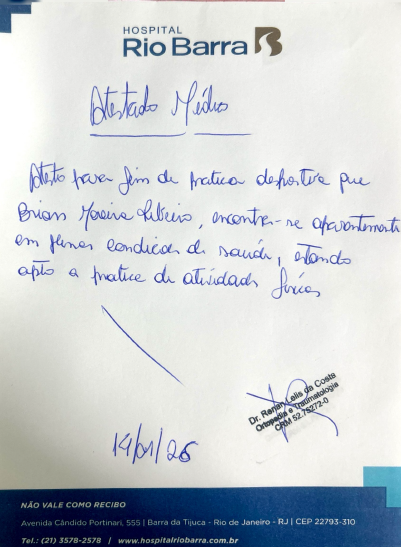 HOSPITAL
Rio Barra
Atestado Médico
Atesto para fim de pratica desportiva que
Brian Moreira Ribeiro, encontra-se aparentemente
em plenas condicoes de saúde, estando
apto a pratica de atividades físicas
14/01/26
Dr. Renan Lelis da Costa
Ortopedia e Traumatologia
CRM 52.75272-0
NÃO VALE COMO RECIBO
Avenida Cândido Portinari, 555 | Barra da Tijuca - Rio de Janeiro - RJ | CEP 22793-310
Tel.: (21) 3578-2578 / www.hospitalriobarra.com.br